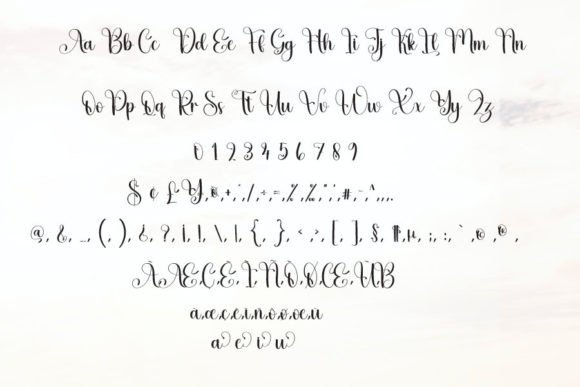 Aa Bb Cc Dd Ee Ff Gg Hh Ii Jj Kk Ll Mm Nn
Oo Pp Qq Rr Ss Tt Uu Vv Ww Xx Yy Zz
0 1 2 3 4 5 6 7 8 9
$ ¢ £ ¥
@, &, _, (, ), ¿, ?, ¡, !, \, |, {, }, <, >, [, ], §, ¶, µ, ;, :, `
À Æ Ç È Ì Ñ Ò Ø Œ Ù ß
à,æ,ç,è,ì,ñ,ò,ø,œ,ù
a e i u